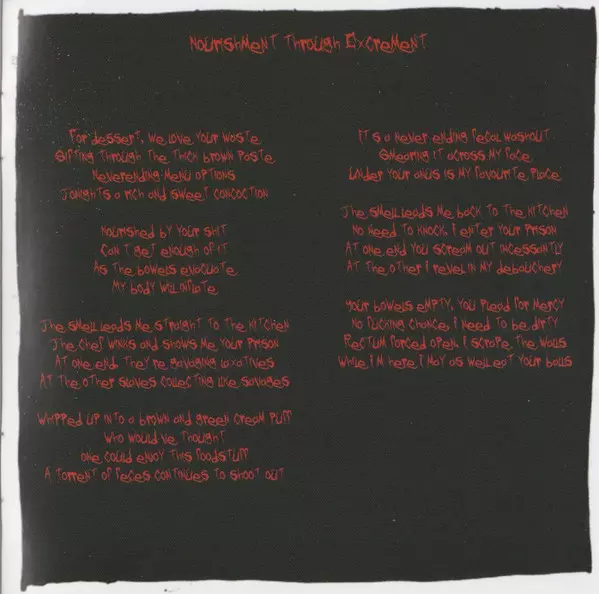 Nourishment Through Excrement
For dessert, we love your waste
Sifting through the thick brown paste
Neverending menu options
Tonights a rich and sweet concoction
Nourished by your shit
Can't get enough of it
As the bowels evacuate
My body will inflate
The smell leads me straight to the kitchen
The chef winks and shows me your prison
At one end, they're gavaging laxatives
At the other slaves collecting like savages
Whipped up into a brown and green cream puff
Who would've thought
one could enjoy this foodstuff
A torrent of feces continues to shoot out
It's a never ending fecal washout
Smearing it across my face
Under your anus is my favourite place
The smell leads me back to the kitchen
No need to knock, I enter your prison
At one end you scream out incessantly
At the other I revel in my debauchery
Your bowels empty, you plead for mercy
No fucking chance, I need to be dirty
Rectum forced open, I scrape the walls
While I'm here I may as well eat your balls